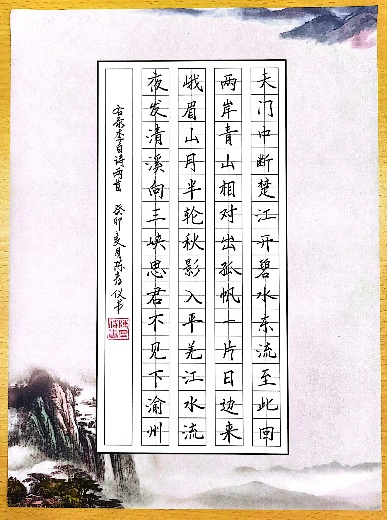 天门中断楚江开碧水东流至此回
两岸青山相对出孤帆一片日边来
峨眉山月半轮秋影入平羌江水流
夜发清溪向三峡思君不见下渝州
右录李白诗两首 癸卯亥月陈存仪书